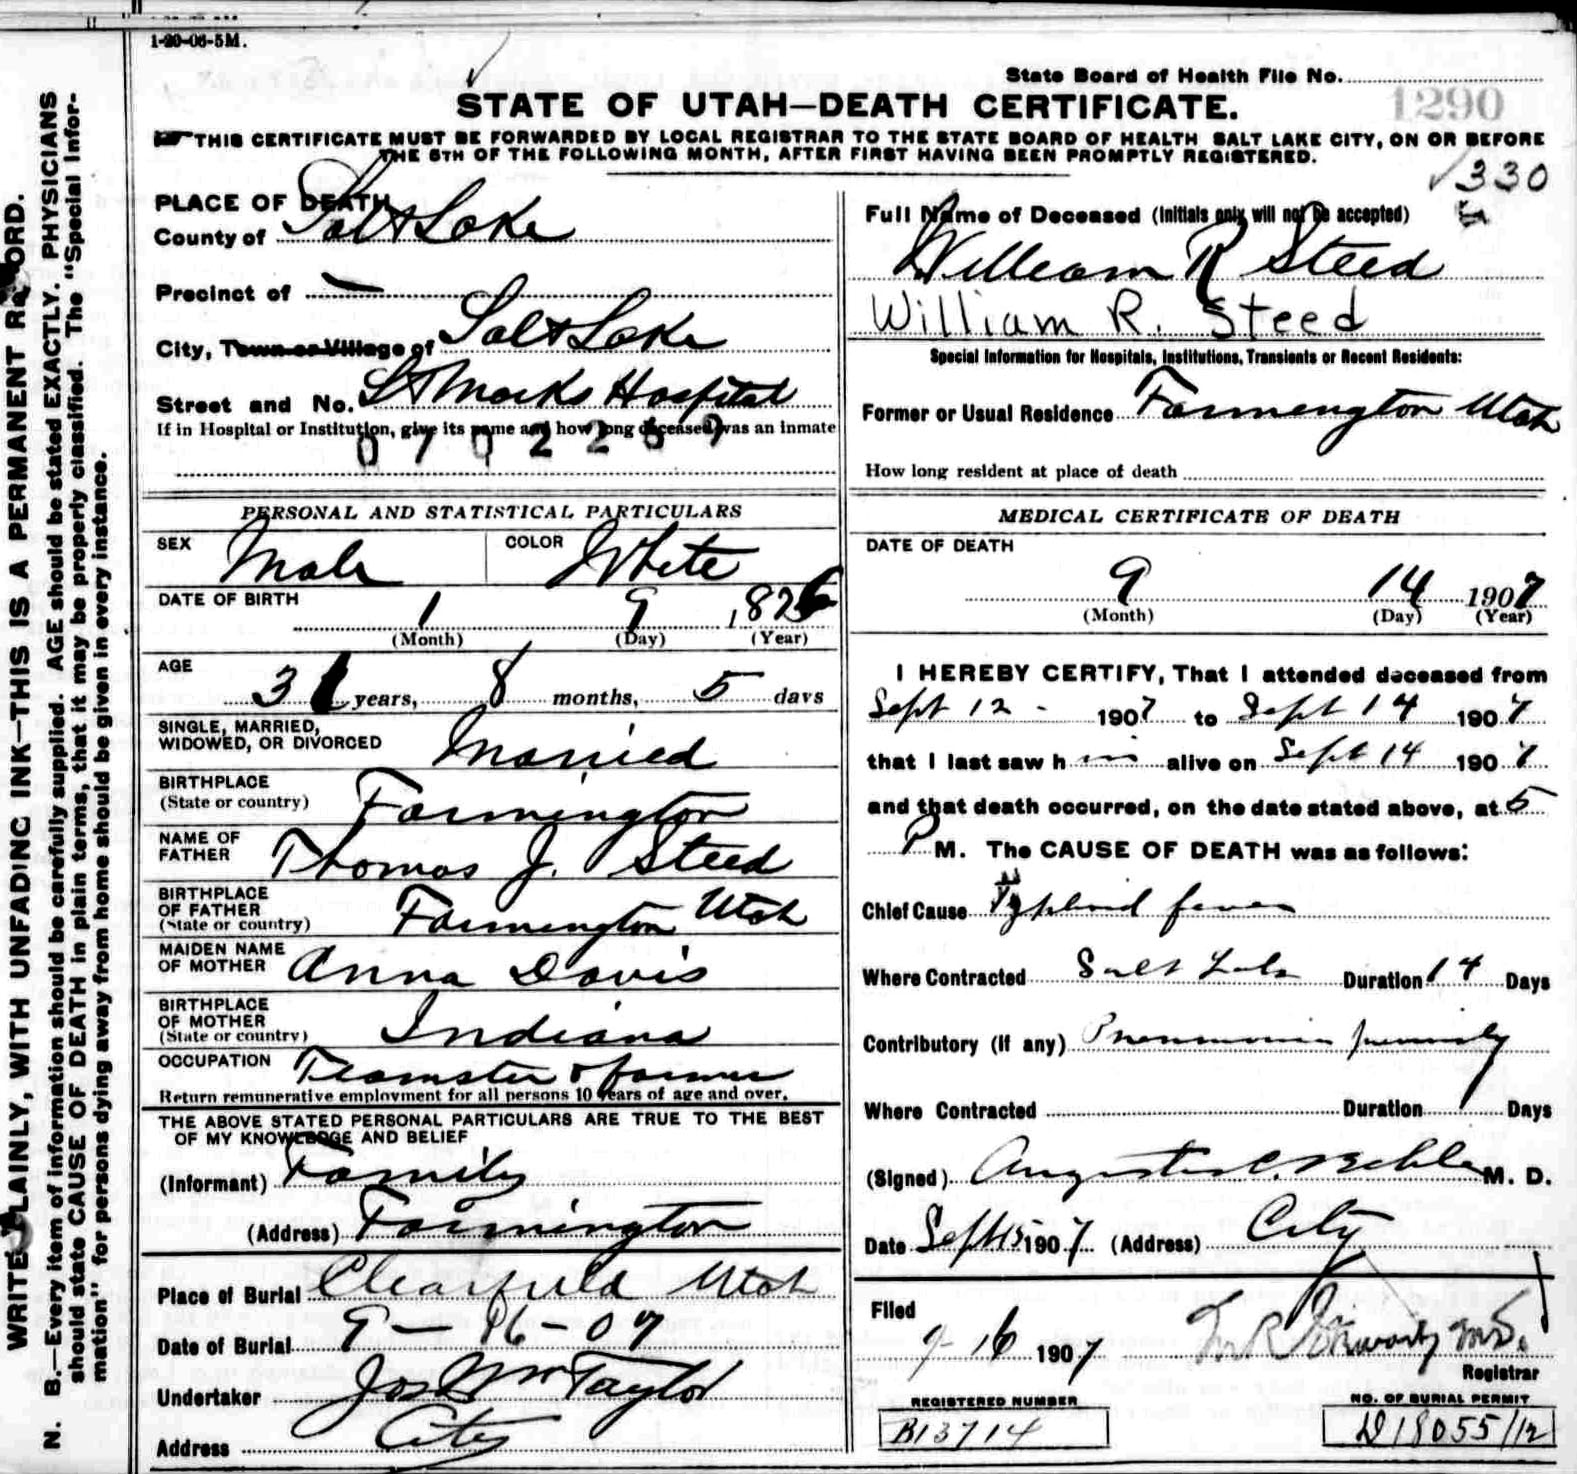 1-20-06-5M.
State Board of Health File No.
1290
STATE OF UTAH—DEATH CERTIFICATE.
THIS CERTIFICATE MUST BE FORWARDED BY LOCAL REGISTRAR TO THE STATE BOARD OF HEALTH SALT LAKE CITY, ON OR BEFORE
THE 5TH OF THE FOLLOWING MONTH, AFTER FIRST HAVING BEEN PROMPTLY REGISTERED.
330
WRITE PLAINLY, WITH UNFADING INK—THIS IS A PERMANENT RECORD.
N. B.—Every item of information should be carefully supplied. AGE should be stated EXACTLY. PHYSICIANS
should state CAUSE OF DEATH in plain terms, that it may be properly classified. The "Special Infor-
mation" for persons dying away from home should be given in every instance.
PLACE OF DEATH
County of Salt Lake
Precinct of —
City, Town or Village of Salt Lake
Street and No. St Marks Hospital
If in Hospital or Institution, give its name and how long deceased was an inmate
0702269
PERSONAL AND STATISTICAL PARTICULARS
SEX Male COLOR White
DATE OF BIRTH 1 9 1876
(Month) (Day) (Year)
AGE
31 years, 8 months, 5 days
SINGLE, MARRIED,
WIDOWED, OR DIVORCED Married
BIRTHPLACE
(State or country) Farmington
NAME OF
FATHER Thomas J. Steed
BIRTHPLACE
OF FATHER
(State or country) Farmington Utah
MAIDEN NAME
OF MOTHER Anna Davis
BIRTHPLACE
OF MOTHER
(State or country) Indiana
OCCUPATION Teamster & farmer
Return remunerative employment for all persons 10 years of age and over.
THE ABOVE STATED PERSONAL PARTICULARS ARE TRUE TO THE BEST
OF MY KNOWLEDGE AND BELIEF
(Informant) Family
(Address) Farmington
Place of Burial Clearfield Utah
Date of Burial 9-16-07
Undertaker Jos Wm Taylor
Address City
Full Name of Deceased (Initials only will not be accepted)
William R Steed
William R. Steed
Special Information for Hospitals, Institutions, Transients or Recent Residents:
Former or Usual Residence Farmington Utah
How long resident at place of death
MEDICAL CERTIFICATE OF DEATH
DATE OF DEATH
9 14 1907
(Month) (Day) (Year)
I HEREBY CERTIFY, That I attended deceased from
Sept 12 - 1907 to Sept 14 1907
that I last saw him alive on Sept 14 1907
and that death occurred, on the date stated above, at 5
P M. The CAUSE OF DEATH was as follows:
Chief Cause Typhoid fever
Where Contracted Salt Lake Duration 14 Days
Contributory (if any) Pneumonia
Where Contracted Duration Days
(Signed) Augustus C. Behle M. D.
Date Sept 15 1907 (Address) City
Filed
9-16 1907
Registrar
REGISTERED NUMBER
B13714
NO. OF BURIAL PERMIT
D18055/12